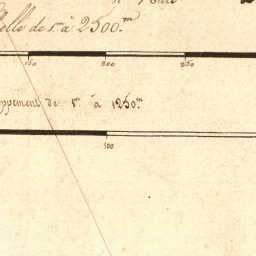 elle de 1.m à 2500.m
150 200 250
ppement de 1.m à 1250.m
100